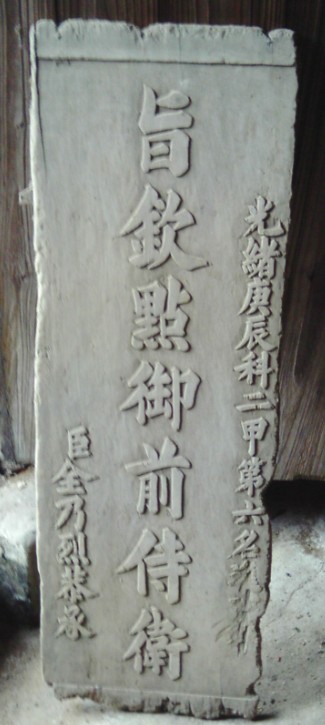 光緒庚辰科二甲第六名武進士
旨欽點御前侍衛
臣金乃烈恭承